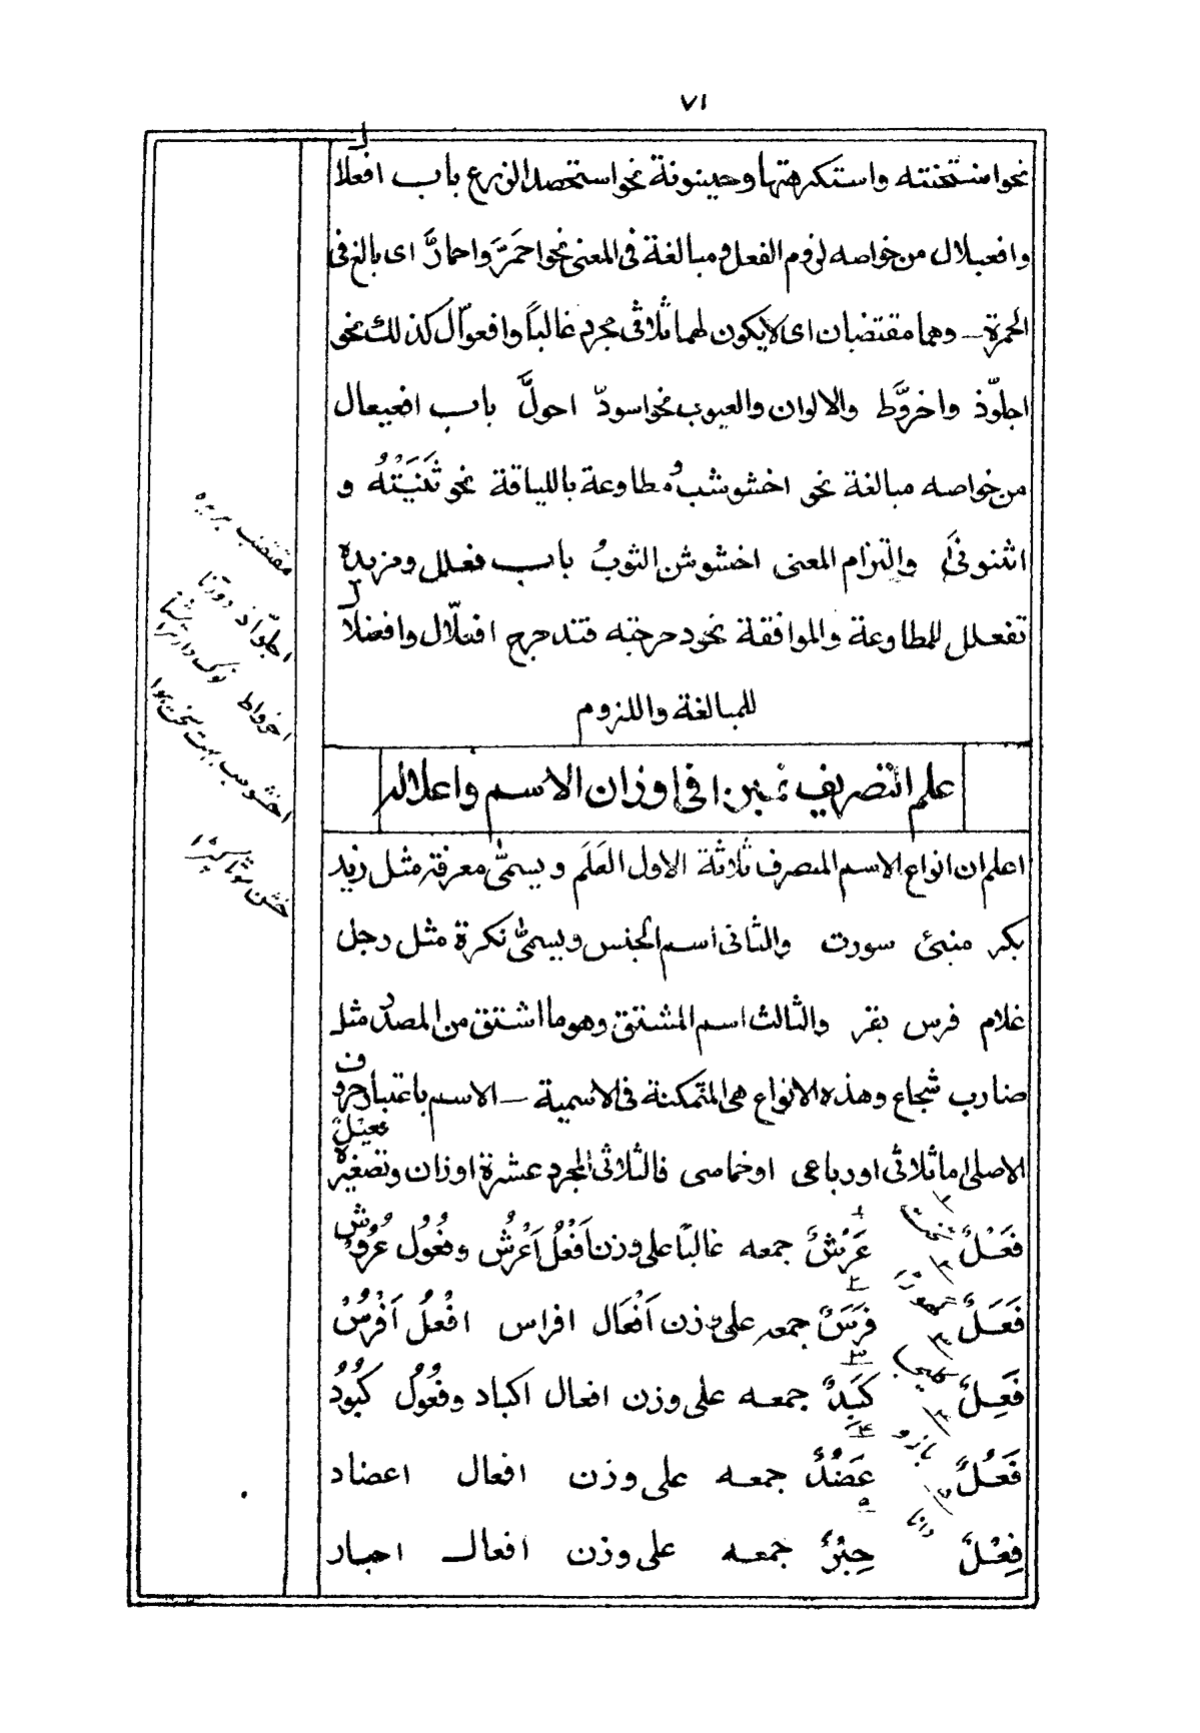 ٧١
نحو استحسنته واستكرهتها وحينونة نحو استحصد الزرع باب افعلال
وافعيلال من خواصه لزوم الفعل و مبالغة فى المعنى نحو احمَرَّ واحمارَّ اى بالغ فى
الحمرة ــ وهما مقتضبان اى لا يكون لهما ثلاثى مجرد غالباً وافعوّال كذلك نحو
اجلوّذ واخروَّط والالوان والعيوب نحو اسودّ احولَّ باب افعيعال
من خواصه مبالغة نحو اخشوشب و مطاوعة باللياقة نحو ثَنَيْتُهُ و
اثنونى والتزام المعنى اخشوشن الثوبُ باب فعلل ومزيده
تفعلل للمطاوعة والموافقة نحو دحرجته فتدحرج افعلّال وافعنلال
للمبالغة واللزوم
علم التصريف نمبر ١٠ فى اوزان الاسم واعلاله
اعلم ان انواع الاسم المصرف ثلاثة الاول العَلَم ويسمّٰى معرفة مثل زيد
بكر منبئ سورت والثانى اسم الجنس ويسمّٰى نكرة مثل رجل
غلام فرس بقر والثالث اسم المشتق وهو ما اشتق من المصدر مثل
ضارب شجاع وهذه الانواع هى المتمكنة فى الاسمية ــ الاسم باعتبار حروف
الاصلى اما ثلاثى او رباعى او خماسى فالثلاثى المجرد عشرة اوزان وتصغيره فُعيل
فَعْلٌ تخت عَرْشٌ جمعه غالباً على وزن اَفْعُلُ اَعْرُشٌ وفُعُول عُرُوْش
فَعَلٌ گھوڑا فَرَسٌ جمعه على وزن اَفْعَال افراس افْعُلُ اَفْرُسٌ
فَعِلٌ كَبِدٌ جمعه على وزن افعال اكباد وفُعُولُ كُبُودٌ
فَعُلٌ بازو عَضُدٌ جمعه على وزن افعال اعضاد
فِعْلٌ دانا حِبْرٌ جمعه على وزن افعال احبار
مقتضب بریده
اجلوّاذ دوڑنا
اخرواط
اخشوشب بہت سخت ہوا
خشن موٹا کپڑا